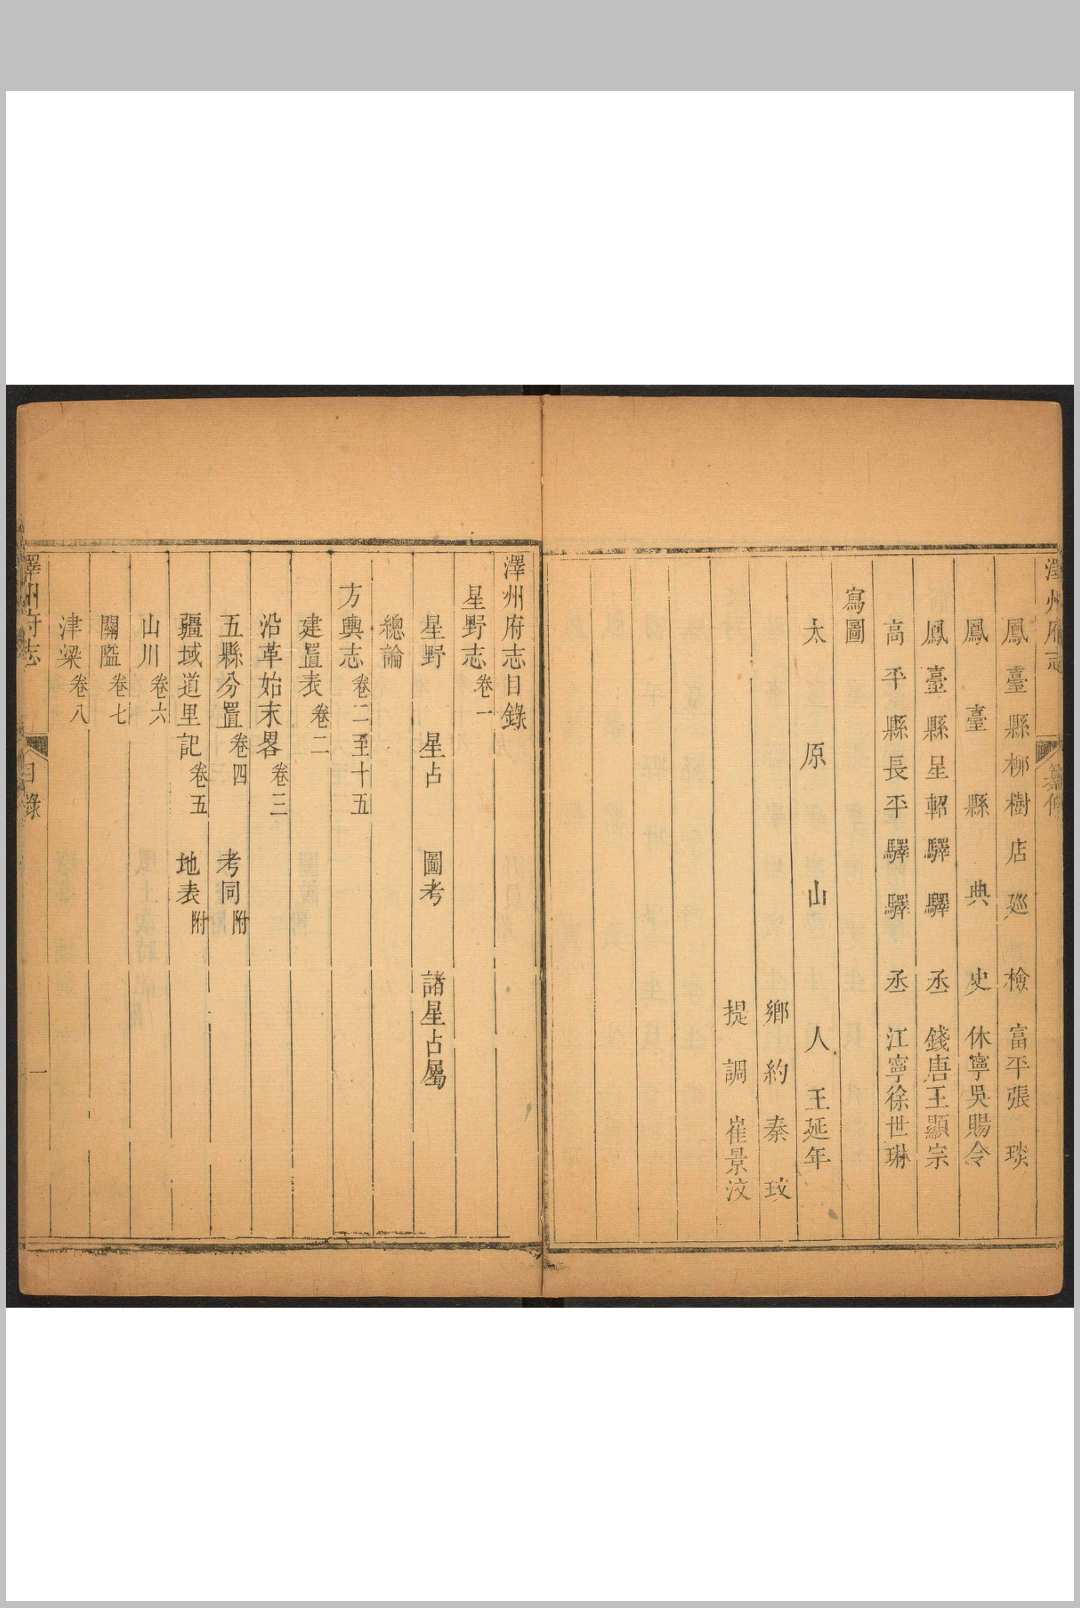 澤州府志
鳳臺縣柳樹店廵檢 富平張琰
鳳臺縣典史 休寧吳賜令
鳳臺縣星軺驛驛丞 錢唐王顯宗
高平縣長平驛驛丞 江寧徐世琳
寫圖
太原山人 王延年
鄉約 秦玟
提調 崔景汶
澤州府志目錄
星野志卷一
星野 星占 圖考 諸星占屬
總論
方輿志卷二至十五
建置表卷二
沿革始末畧卷三
五縣分置卷四 考同附
疆域道里記卷五 地表附
山川卷六
關隘卷七
津梁卷八
澤州府志 目錄 一